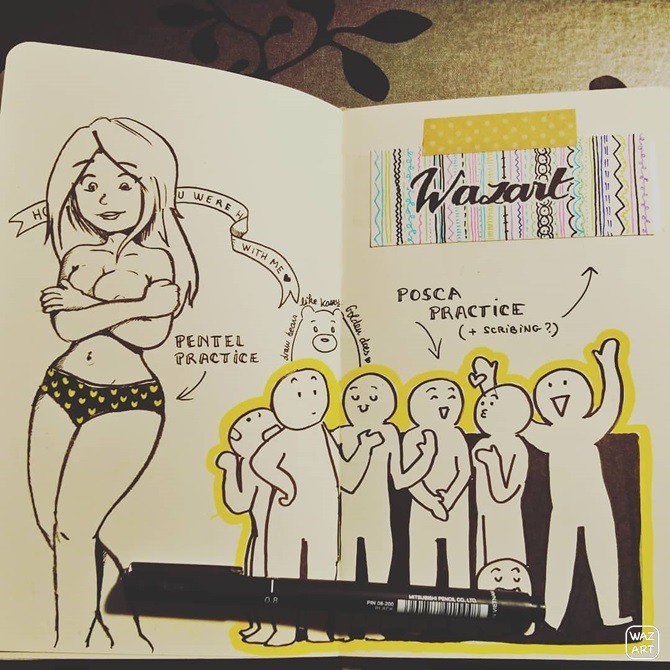 U WERE H
WITH ME
PENTEL
PRACTICE
draw bears
like Kasey
Golden does
Wazart
POSCA
PRACTICE
(+ SCRIBING?)
0.8
PIN 08-200
BLACK
MITSUBISHI PENCIL CO., LTD.
WAZ
ART